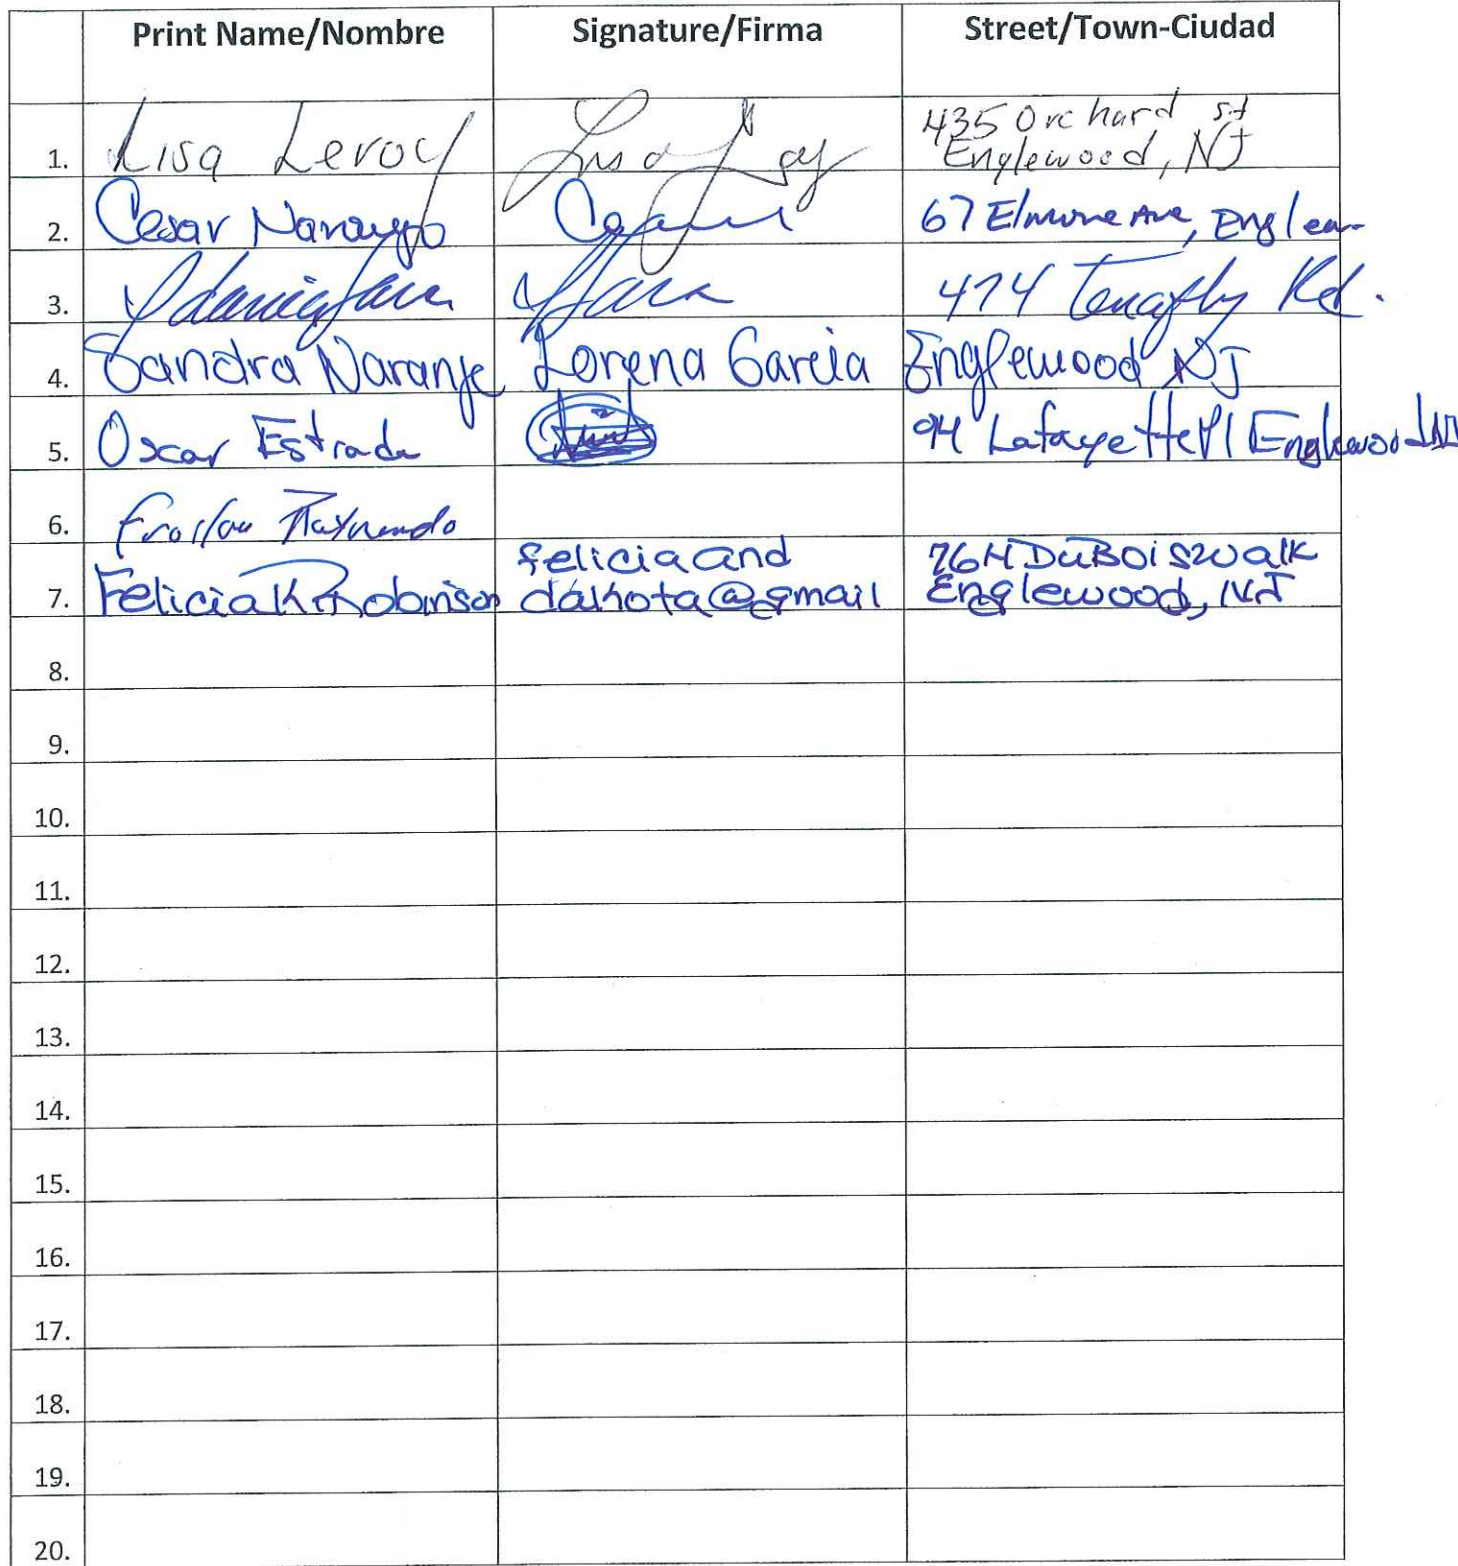 Print Name/Nombre Signature/Firma Street/Town-Ciudad
435 Orchard st
1. Lisa Leroy Englewood, NJ
2. Cesar Naranjo 67 Elmore Ave, Englew
3. 474 Tenafly Rd.
4. Sandra Naranjo Lorena Garcia Englewood NJ
5. Oscar Estrada 94 Lafayette Pl Englewood NJ
6. Froilan Raymundo
felicia and 76H DuBois walk
7. Felicia K Robinson dakota@gmail Englewood, NJ
8.
9.
10.
11.
12.
13.
14.
15.
16.
17.
18.
19.
20.